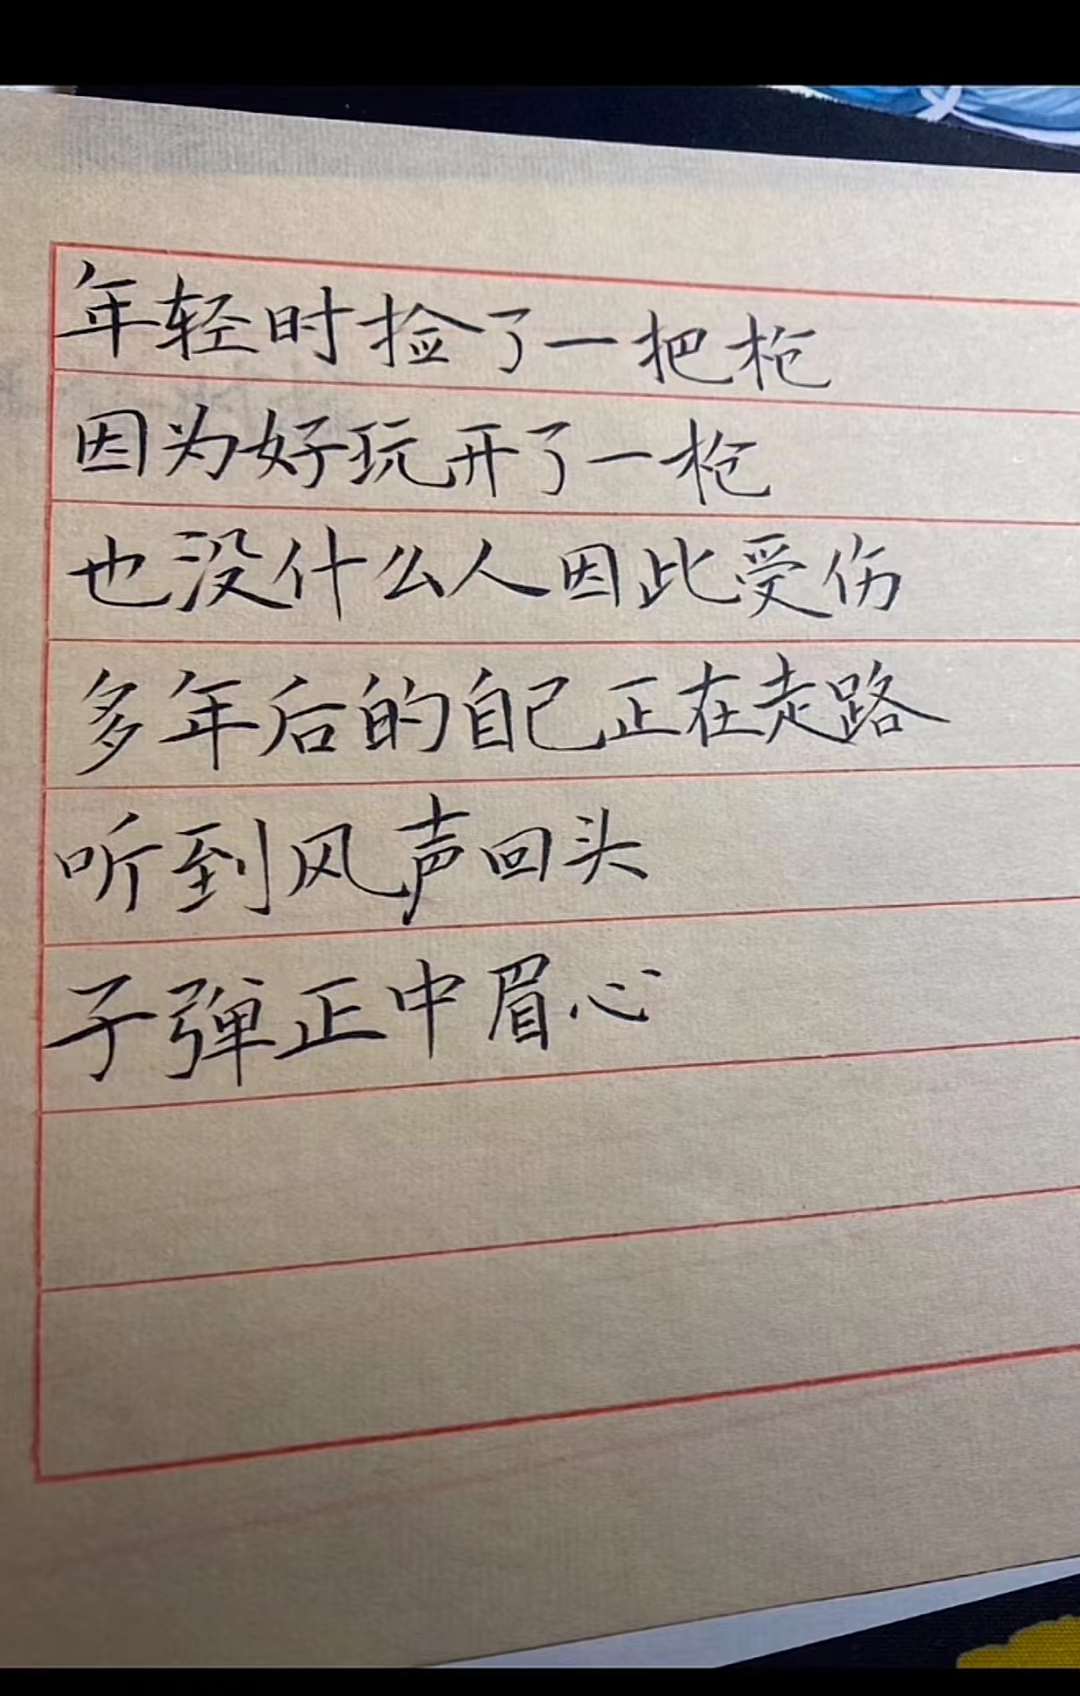 年轻时捡了一把枪
因为好玩开了一枪
也没什么人因此受伤
多年后的自己正在走路
听到风声回头
子弹正中眉心